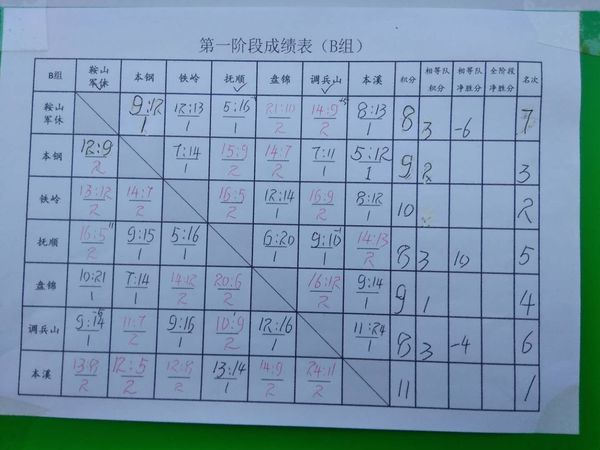 第一阶段成绩表（B组）
B组 鞍山军休 本钢 铁岭 抚顺 盘锦 调兵山 本溪 积分 相等队积分 相等队净胜分 全阶段净胜分 名次
鞍山军休 9:12 1 12:13 1 5:16 1 21:10 2 14:9 +5 2 8:13 1 8 3 -6 7
本钢 12:9 2 7:14 1 15:9 2 14:7 2 7:11 1 5:12 1 9 2 3
铁岭 13:12 2 14:7 2 16:5 2 12:14 1 16:9 2 8:12 1 10 2
抚顺 16:5 11 2 9:15 1 5:16 1 6:20 1 9:10 -1 1 14:13 2 8 3 10 5
盘锦 10:21 1 7:14 1 14:12 2 20:6 2 16:12 2 9:14 1 9 1 4
调兵山 9:14 -5 1 11:7 2 9:16 1 10:9 2 12:16 1 11:24 1 8 3 -4 6
本溪 13:8 2 12:5 2 12:8 2 13:14 1 14:9 2 24:11 2 11 1